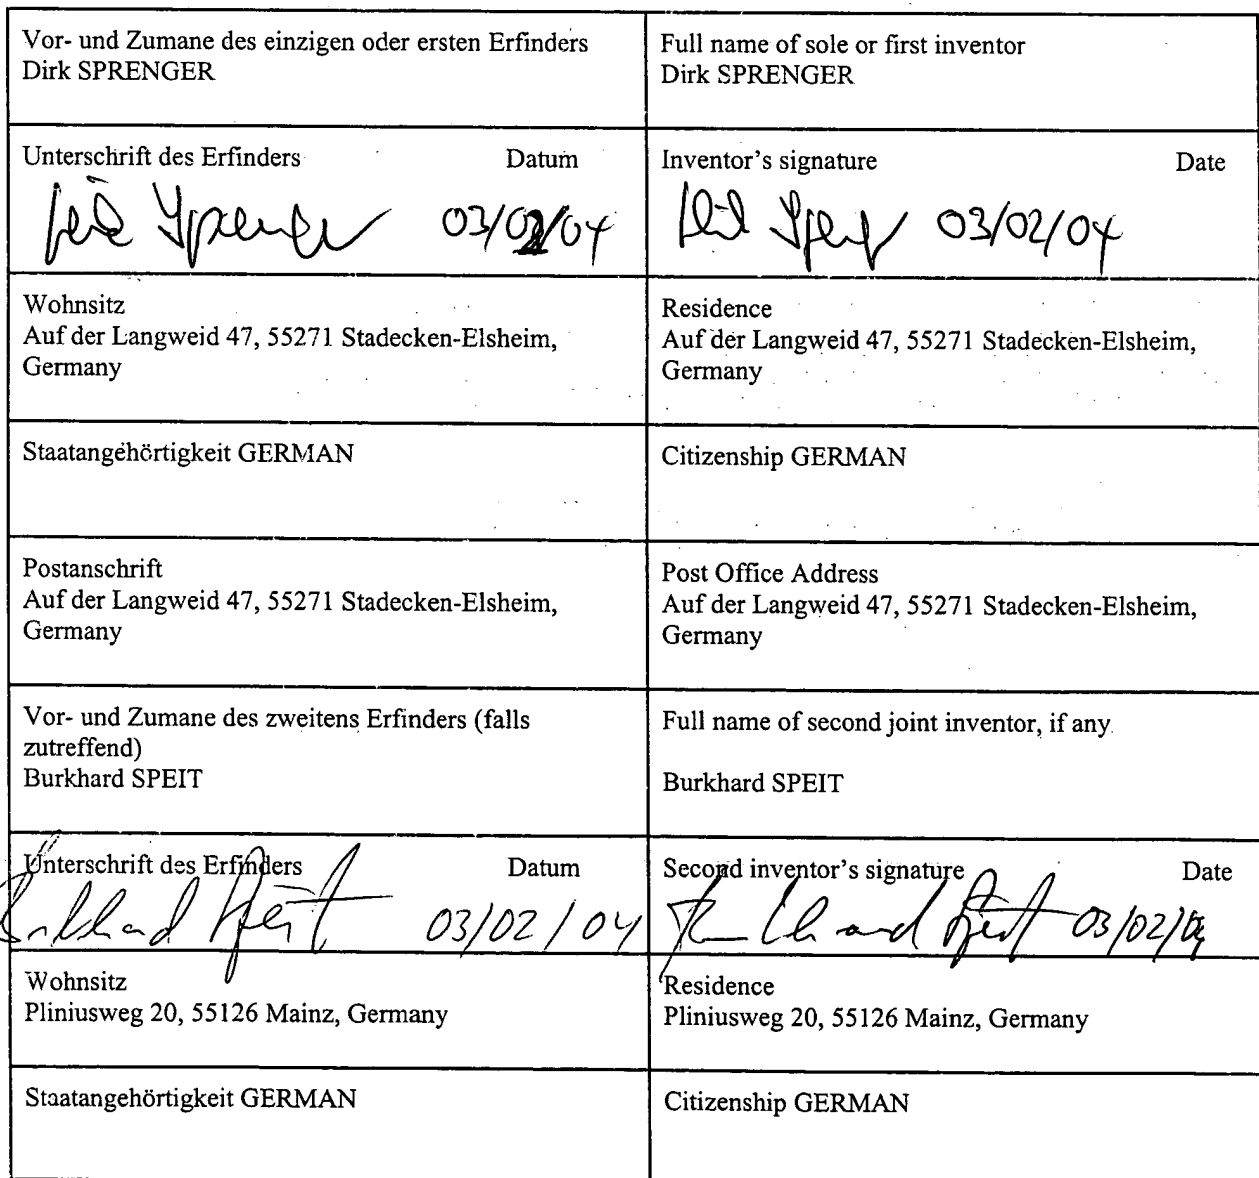 Vor- und Zumane des einzigen oder ersten Erfinders
Dirk SPRENGER
Full name of sole or first inventor
Dirk SPRENGER
Unterschrift des Erfinders Datum
Dirk Sprenger 03/02/04
Inventor's signature Date
Dirk Sprenger 03/02/04
Wohnsitz
Auf der Langweid 47, 55271 Stadecken-Elsheim,
Germany
Residence
Auf der Langweid 47, 55271 Stadecken-Elsheim,
Germany
Staatangehörtigkeit GERMAN
Citizenship GERMAN
Postanschrift
Auf der Langweid 47, 55271 Stadecken-Elsheim,
Germany
Post Office Address
Auf der Langweid 47, 55271 Stadecken-Elsheim,
Germany
Vor- und Zumane des zweitens Erfinders (falls
zutreffend)
Burkhard SPEIT
Full name of second joint inventor, if any
Burkhard SPEIT
Unterschrift des Erfinders Datum
Burkhard Speit 03/02/04
Second inventor's signature Date
Burkhard Speit 03/02/04
Wohnsitz
Pliniusweg 20, 55126 Mainz, Germany
Residence
Pliniusweg 20, 55126 Mainz, Germany
Staatangehörtigkeit GERMAN
Citizenship GERMAN